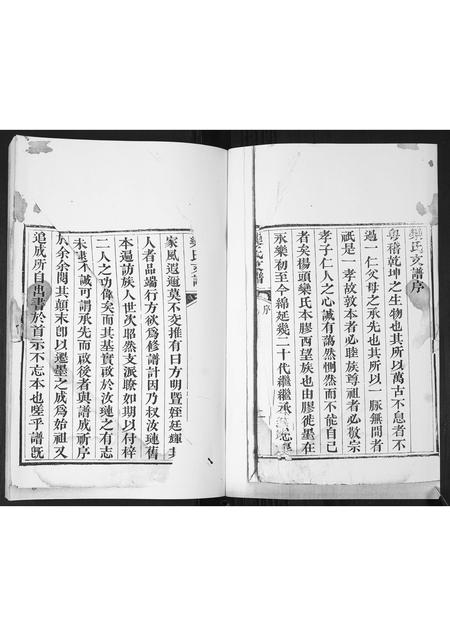 欒氏支譜序
粵稽乾坤之生物也其所以萬古不息者不
過一仁父母之承先也其所以一脉無間者
祇是一孝故敦本者必睦族尊祖者必敬宗
孝子仁人之心誠有藹然惻然而不能自已
者矣楊頭欒氏本膠西望族也由膠徙墨在
永樂初至今綿延幾二十代繼繼承
欒氏支譜
序
家風遐邇莫不交推有曰方明暨姪廷輝
人者品端行方欲為修譜計因乃叔汝璉舊
本遍訪族人世次昭然支派瞭如期以付梓
二人之功偉矣而其基實啟於汝璉之有志
未逮不誠可謂承先而啟後者與譜成祈序
於余余閱其顛末卽以遷墨之威為始祖又
追威所自出書於首示不忘本也嗟乎譜旣